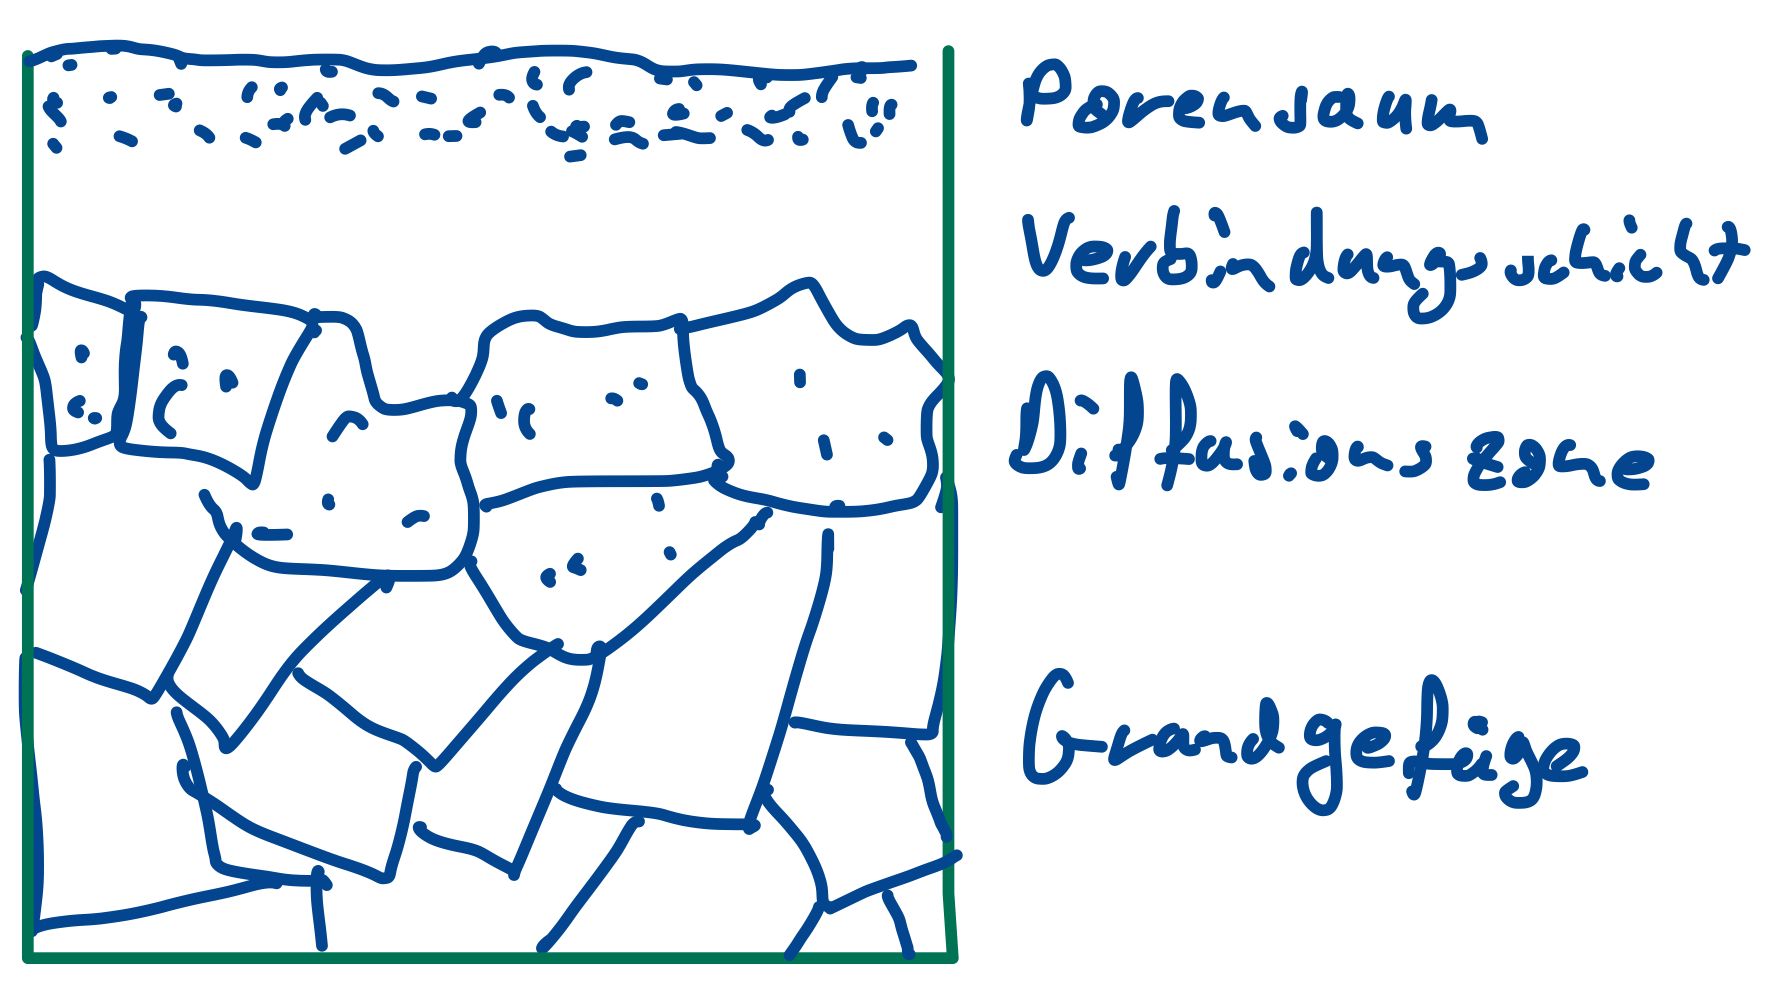 Porensaum
Verbindungsschicht
Diffusionszone
Grundgefüge